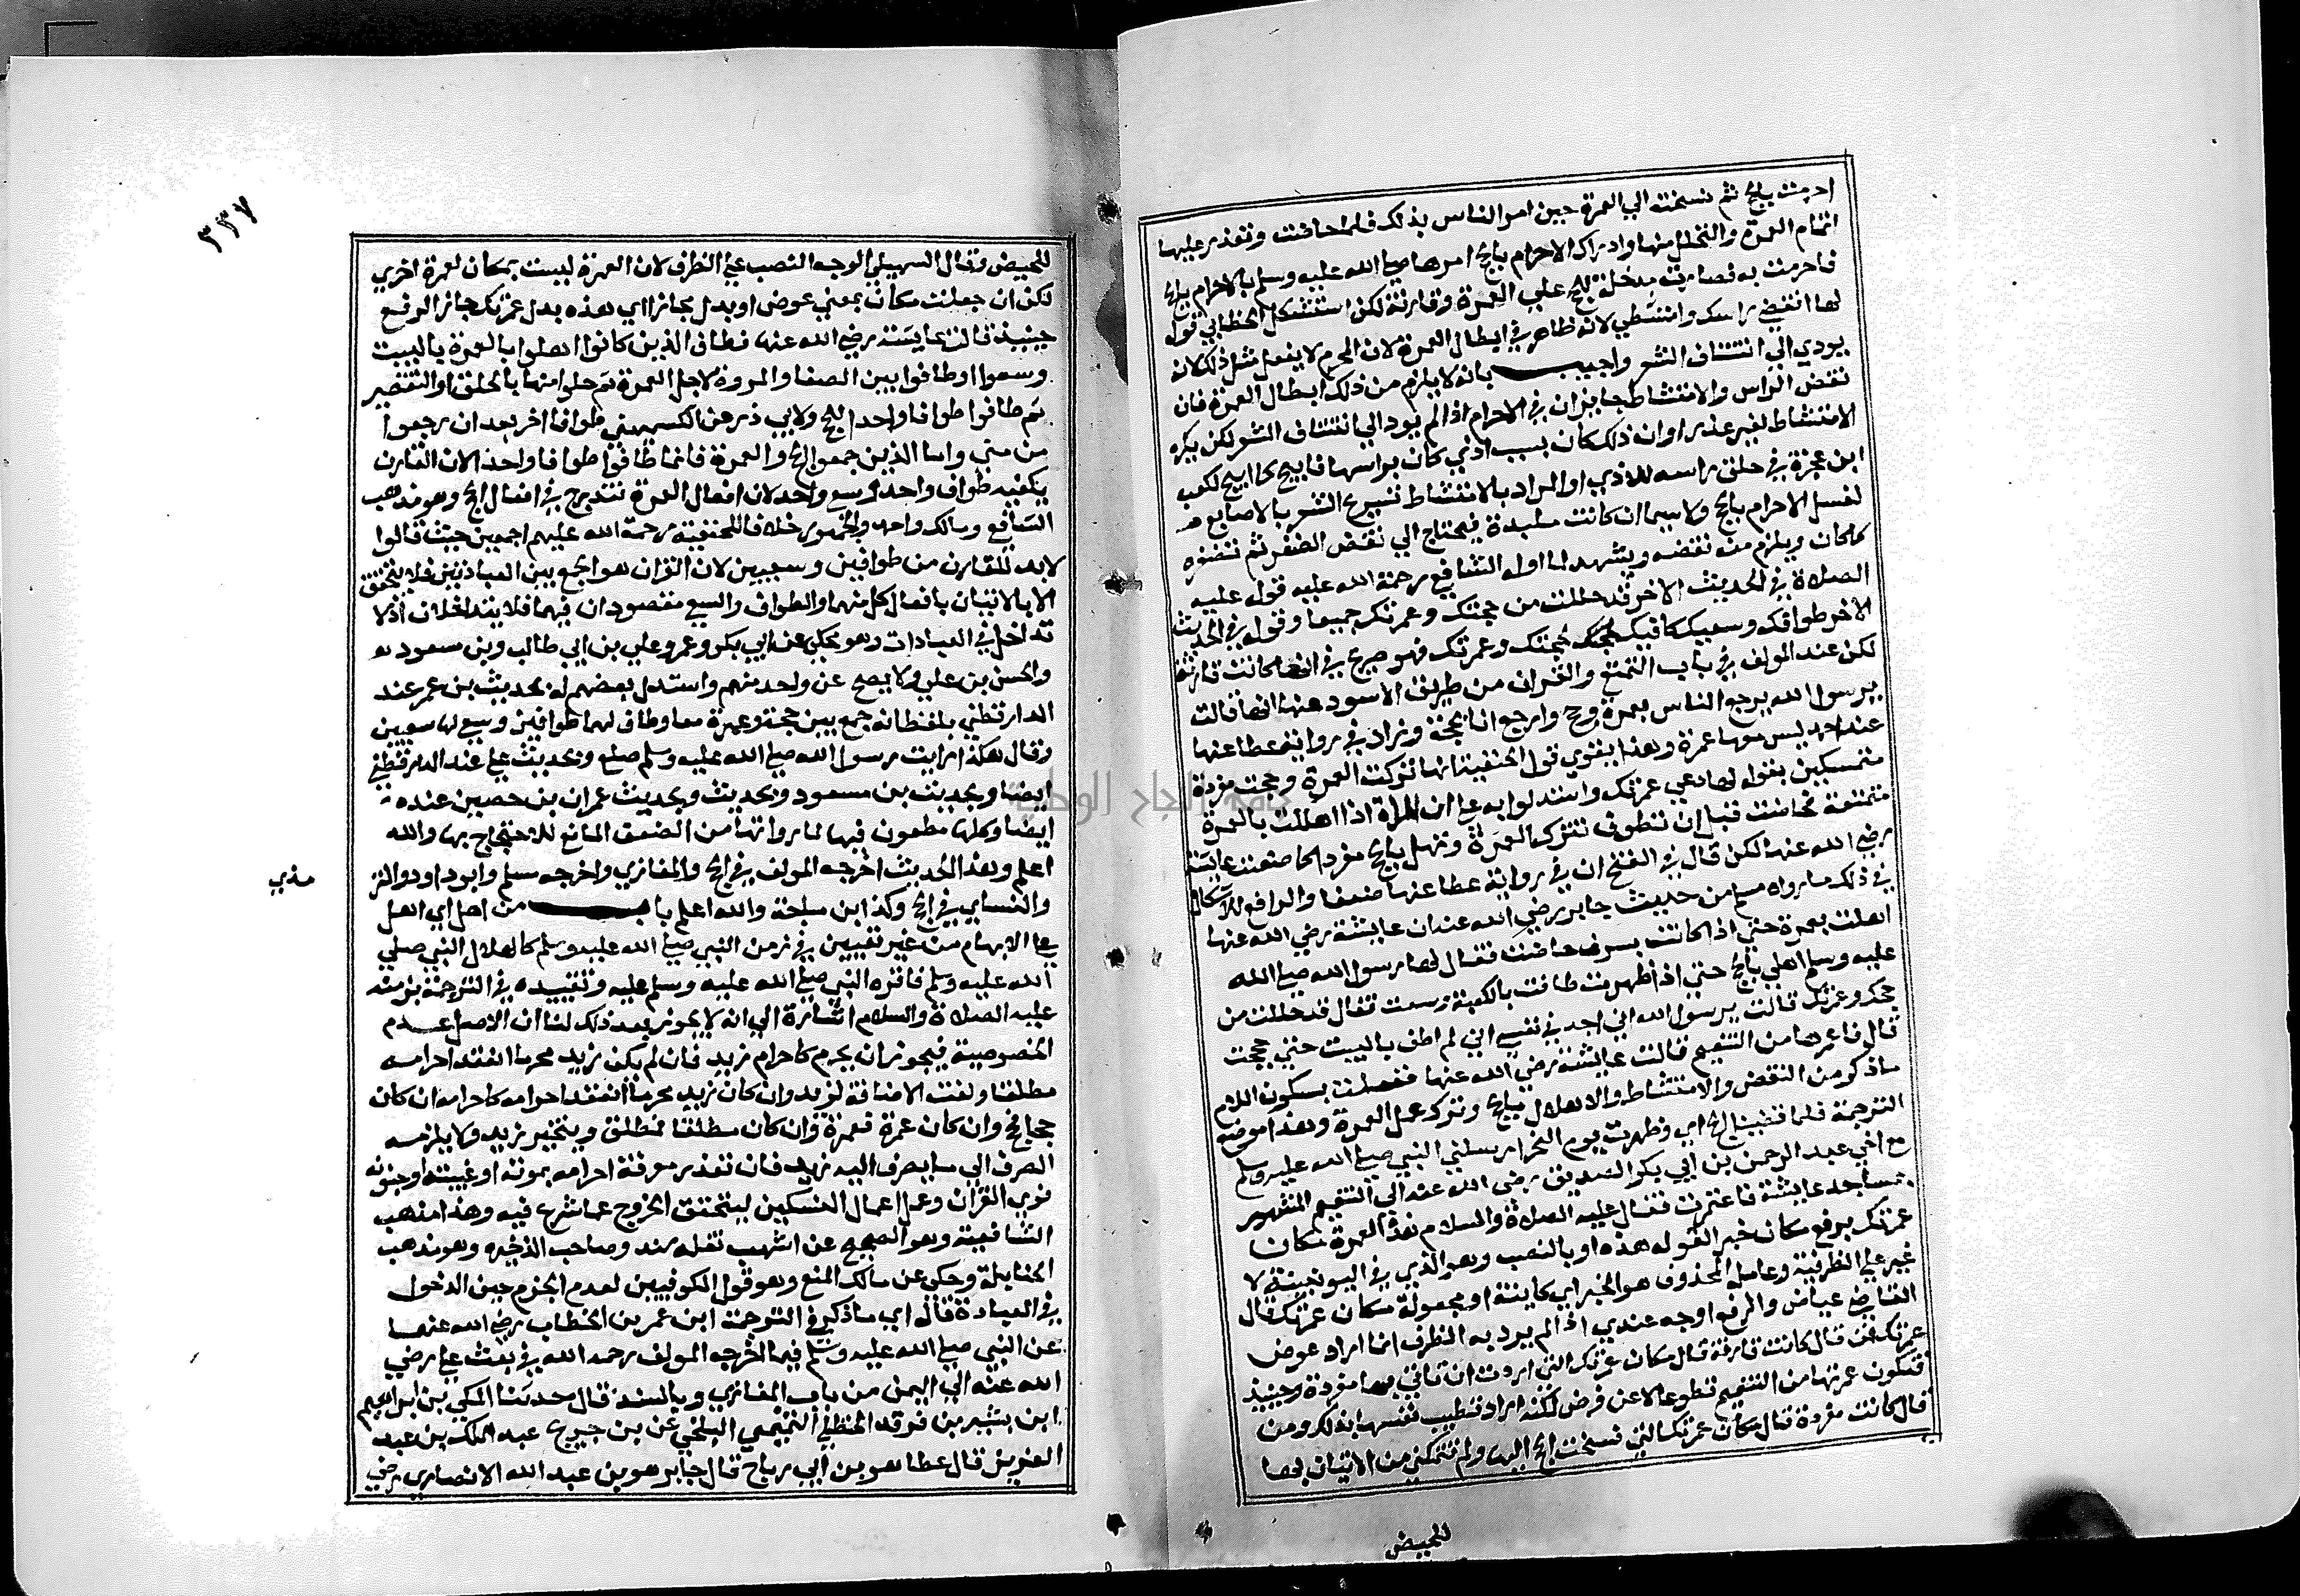 احرمت بالحج ثم نسخته الي العمرة حين امر الناس بذلك فلما حاضت وتعذر عليها
اتمام العمرة والتحلل منها وادراك الاحرام بالحج امرها صلى الله عليه وسلم بالاحرام بالحج
فاحرمت به فصارت مدخلة للحج على العمرة وقارنة لكن استشكل الخطابي قوله
لها انقضي راسك وامتشطي لانه ظاهر في ابطال العمرة لان المحرم لا يفعل مثل ذلك لانه
يودي الي انتتاف الشعر واجيب بانه لا يلزم من ذلك ابطال العمرة فان
نقض الراس والامتشاط جايزان في الاحرام اذا لم يود الي انتتاف الشعر لكن يكره
الامتشاط لغير عذر اوان ذلك كان بسبب اذي كان براسها فابيح كما ابيح لكعب
ابن عجرة في حلق راسه للاذي او المراد بالامتشاط تسريح الشعر بالاصابع
لغسل الاحرام بالحج ولا سيما ان كانت ملبدة فيحتاج الي نقض الضفر ثم تضفره
كما كان ويلزم منه نقضه ويشهد لما اوله الشافعي رحمة الله عليه قوله عليه
الصلاة في الحديث الاخر قد حللت من حجتك وعمرتك جميعا وقوله في الحديث
الاخر طوافك وسعيك كافيك لحجتك وعمرتك فهو صريح في انها كانت قارنة
لكن عند المولف في باب التمتع والقران من طريق الاسود عنها انها قالت
يرسول الله يرجع الناس بعمرة وحج وارجع انا بحجة وزاد في رواية عطا عنها
عند احمد ليس معها عمرة وهذا يقوي قول الحنفية انها تركت العمرة وحجت مفردة
متمسكين بقوله لها دعي عمرتك واستدلوا به علي ان المراة اذا اهلت بالعمرة
متمتعة فحاضت قبل ان تطوف تترك العمرة وتهل بالحج مفردا كما صنعت عايشة
رضي الله عنها لكن قال في الفتح ان في رواية عطا عنها ضعفا والرافع للاشكال
في ذلك ما رواه مسلم من حديث جابر رضي الله عنه ان عايشة رضي الله عنها
اهلت بعمرة حتي اذا كانت بسرف حاضت فقال لها رسول الله صلى الله
عليه وسلم اهلي بالحج حتي اذا طهرت طافت بالكعبة وسعت فقال قد حللت من
حجك وعمرتك قالت يرسول الله اني اجد في نفسي اني لم اطف بالبيت حتي حججت
قال فاعمرها من التنعيم قالت عايشة رضي الله عنها ففعلت بسكون اللام
ما ذكر من النقض والامتشاط والاهلال بالحج وترك عمل العمرة وهذا موضع
الترجمة فلما قضينا الحج اي وطهرت يوم النحر ارسلني النبي صلى الله عليه وسلم
مع اخي عبد الرحمن بن ابي بكر الصديق رضي الله عنه الي التنعيم المشهور
بمساجد عايشة فاعتمرت فقال عليه الصلاة والسلام هذه العمرة مكان
عمرتك برفع مكان خبر القوله هذه او بالنصب وهو الذي في اليونينية لا
غير علي الظرفية وعامله المحذوف هو الخبر اي كاينة او مجعولة مكان عمرتك قال
القاضي عياض والرفع اوجه عندي اذ لم يرد به الظرف انما اراد عوض
عمرتك فمن قال كانت قارنة قال مكان عمرتك التي اردت ان تاتي بها مفردة وحينيذ
فتكون عمرتها من التنعيم تطوعا لا عن فرض لكنه اراد تطييب نفسها بذلك ومن
قال كانت مفردة قال مكان عمرتك التي نسخت الحج اليها ولم تتمكني من الاتيان بها
للحيض
٣٣٧
للحيض وقال السهيلي الوجه النصب علي الظرف لان العمرة ليست بمكان لعمرة اخري
لكن ان جعلت مكان بمعني عوض او بدل مجازا اي هذه بدل عمرتك جاز الرفع
حينيذ قالت عايشة رضي الله عنها فطاف الذين كانوا اهلوا بالعمرة بالبيت
وسعوا او طافوا بين الصفا والمروة لاجل العمرة ثم حلوا منها بالحلق او التقصير
ثم طافوا طوافا واحدا للحج ولابي ذر عن الكشميهني طوافا اخر بعد ان رجعوا
من مني واما الذين جمعوا الحج والعمرة فانما طافوا طوافا واحدا لان القارن
يكفيه طواف واحد وسعي واحد لان افعال العمرة تندرج في افعال الحج وهو مذهب
الشافعي ومالك واحمد والجمهور خلافا للحنفية رحمة الله عليهم اجمعين حيث قالوا
لابد للقارن من طوافين وسعيين لان القران هو الجمع بين العبادتين فلا يتحقق
الا بالاتيان بافعال كل منهما والطواف والسعي مقصودان فيهما فلا يتداخلان اذ لا
تداخل في العبادات وهو محكي عن ابي بكر وعمر وعلي بن ابي طالب وبن مسعود
والحسن بن علي ولا يصح عن واحد منهم واستدل بعضهم له بحديث بن عمر عند
الدارقطني بلفظ انه جمع بين حجة وعمرة معا وطاف لهما طوافين وسعي لها سعيين
وقال هكذا رايت رسول الله صلى الله عليه وسلم صنع وبحديث علي عند الدارقطني
ايضا وبحديث بن مسعود وبحديث وبحديث عمران بن حصين عنده
ايضا وكلها مطعون فيها لما رواتها من الضعف المانع للاحتجاج بها والله
اعلم وهذا الحديث اخرجه المولف في الحج والمغازي واخرجه مسلم وابو داود والتر
مذي
والنساي في الحج وكذا ابن ماجة والله اعلم باب من اهل اي اهل
علي الابهام من غير تعيين في زمن النبي صلى الله عليه وسلم كاهلال النبي صلي
الله عليه وسلم فاقره النبي صلى الله عليه وسلم عليه وتقييده في الترجمة بزمنه
عليه الصلاة والسلام اشارة الي انه لا يجوز بعد ذلك لنا ان الاصل عدم
الخصوصية فيجوز ان يحرم كاحرام زيد فان لم يكن زيد محرما انعقد احرامه
مطلقا ولغت الاضافة لزيد وان كان زيد محرما انعقد احرامه كاحرامه ان كان
حجا فحج وان كان عمرة فعمرة وان كان مطلقا فمطلق ويتخير زيد ولا يلزمه
الصرف الي ما يصرف اليه زيد فان تعذر معرفة احرامه بموته او غيبته او جنونه
نوي القران وعمل اعمال النسكين ليتحقق الخروج عما شرع فيه وهذا مذهب
الشافعية وهو الصحيح عن اشهب نقله سند وصاحب الذخيره وهو مذهب
الحنابلة وحكي عن مالك المنع وهو قول الكوفيين لعدم الجزم حين الدخول
في العبادة قاله اي ما ذكر في الترجمة ابن عمر بن الخطاب رضي الله عنهما
عن النبي صلى الله عليه وسلم فيما اخرجه المولف رحمه الله في بعث علي رضي
الله عنه الي اليمن من باب المغازي وبالسند قال حدثنا المكي بن ابراهيم
ابن بشير بن فرقد الحنظلي التميمي البلخي عن بن جريج عبد الملك بن عبد
العزيز قال عطا هو بن ابي رباح قال جابر هو بن عبد الله الانصاري رضي